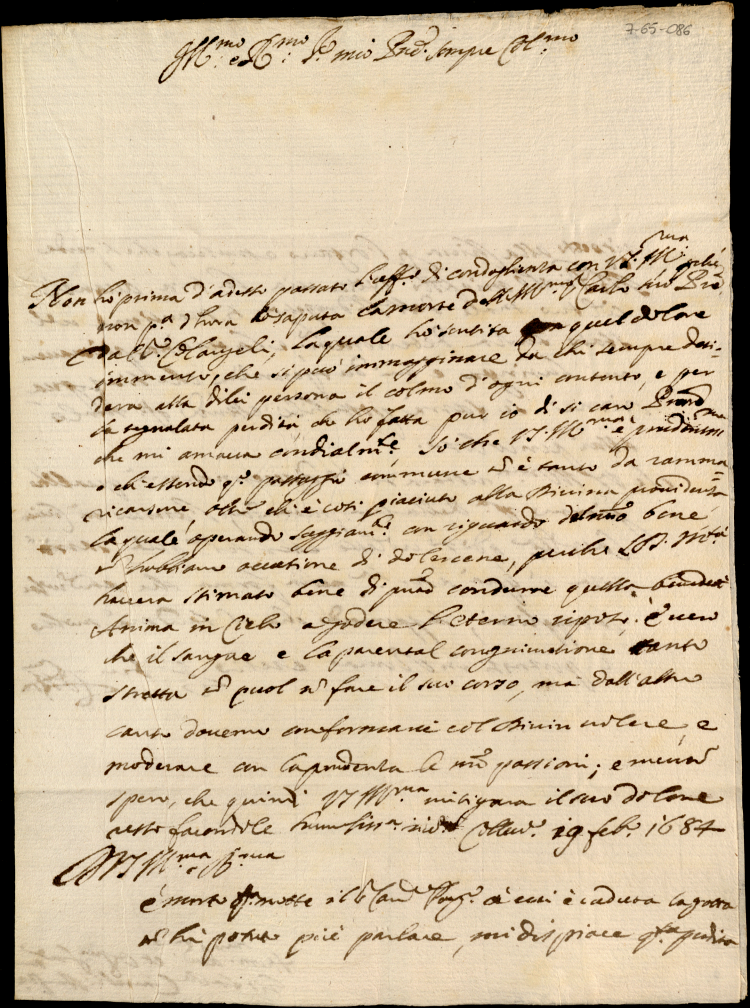 7-65-086
Ill.mo e R.mo S.r mio Prõn. sempre Col.mo
Non ho prima d'adesso passato l'eff.o di condoglienza con V.S. Ill.ma perché
non p.a d'hora ho saputa la morte dell'Ill.mo Carlo suo
dal S. Colangeli, la quale ho sentita con quel dolore
immenso, che si può immagginare da chi sempre desi-
dera alla di lei persona il colmo d'ogni contento, e per
la segnalata perdita che ho fatta pur io di sì caro
che mi amava cordialm.te. Sò che V.S. Ill.ma è prudentiss.ma
e ch'essendo q.o passaggio commune nõ è tanto da ramma=
ricarsene oltre ch'è così piaciuto alla Divina providenza
la quale operando saggiam.te con riguardo del nr̃o bene
nõ habbiamo occasione di dolercene, perche S.D. M.tà
haverà stimato bene di condurre quella benedetta
Anima in Cielo a godere l'eterno riposo. È vero
che il sangue e la parental congiuntione tanto
stretta nõ puol nõ fare il suo corso, ma dall'altro
canto dovemo conformarci col Divin volere, e
moderare con la prudenza le nr̃e passioni; e mentre
spero, che quindi V.S. Ill.ma mitigarà il suo dolore
resto facendole humiliss.a Collev. 19 feb.o 1684
D V.S. Ill.ma e R.ma
é morto q.a notte il S. Can. à cui è caduta la gocca
nõ hà potuto più parlare, mi dispiace q.sta perdita